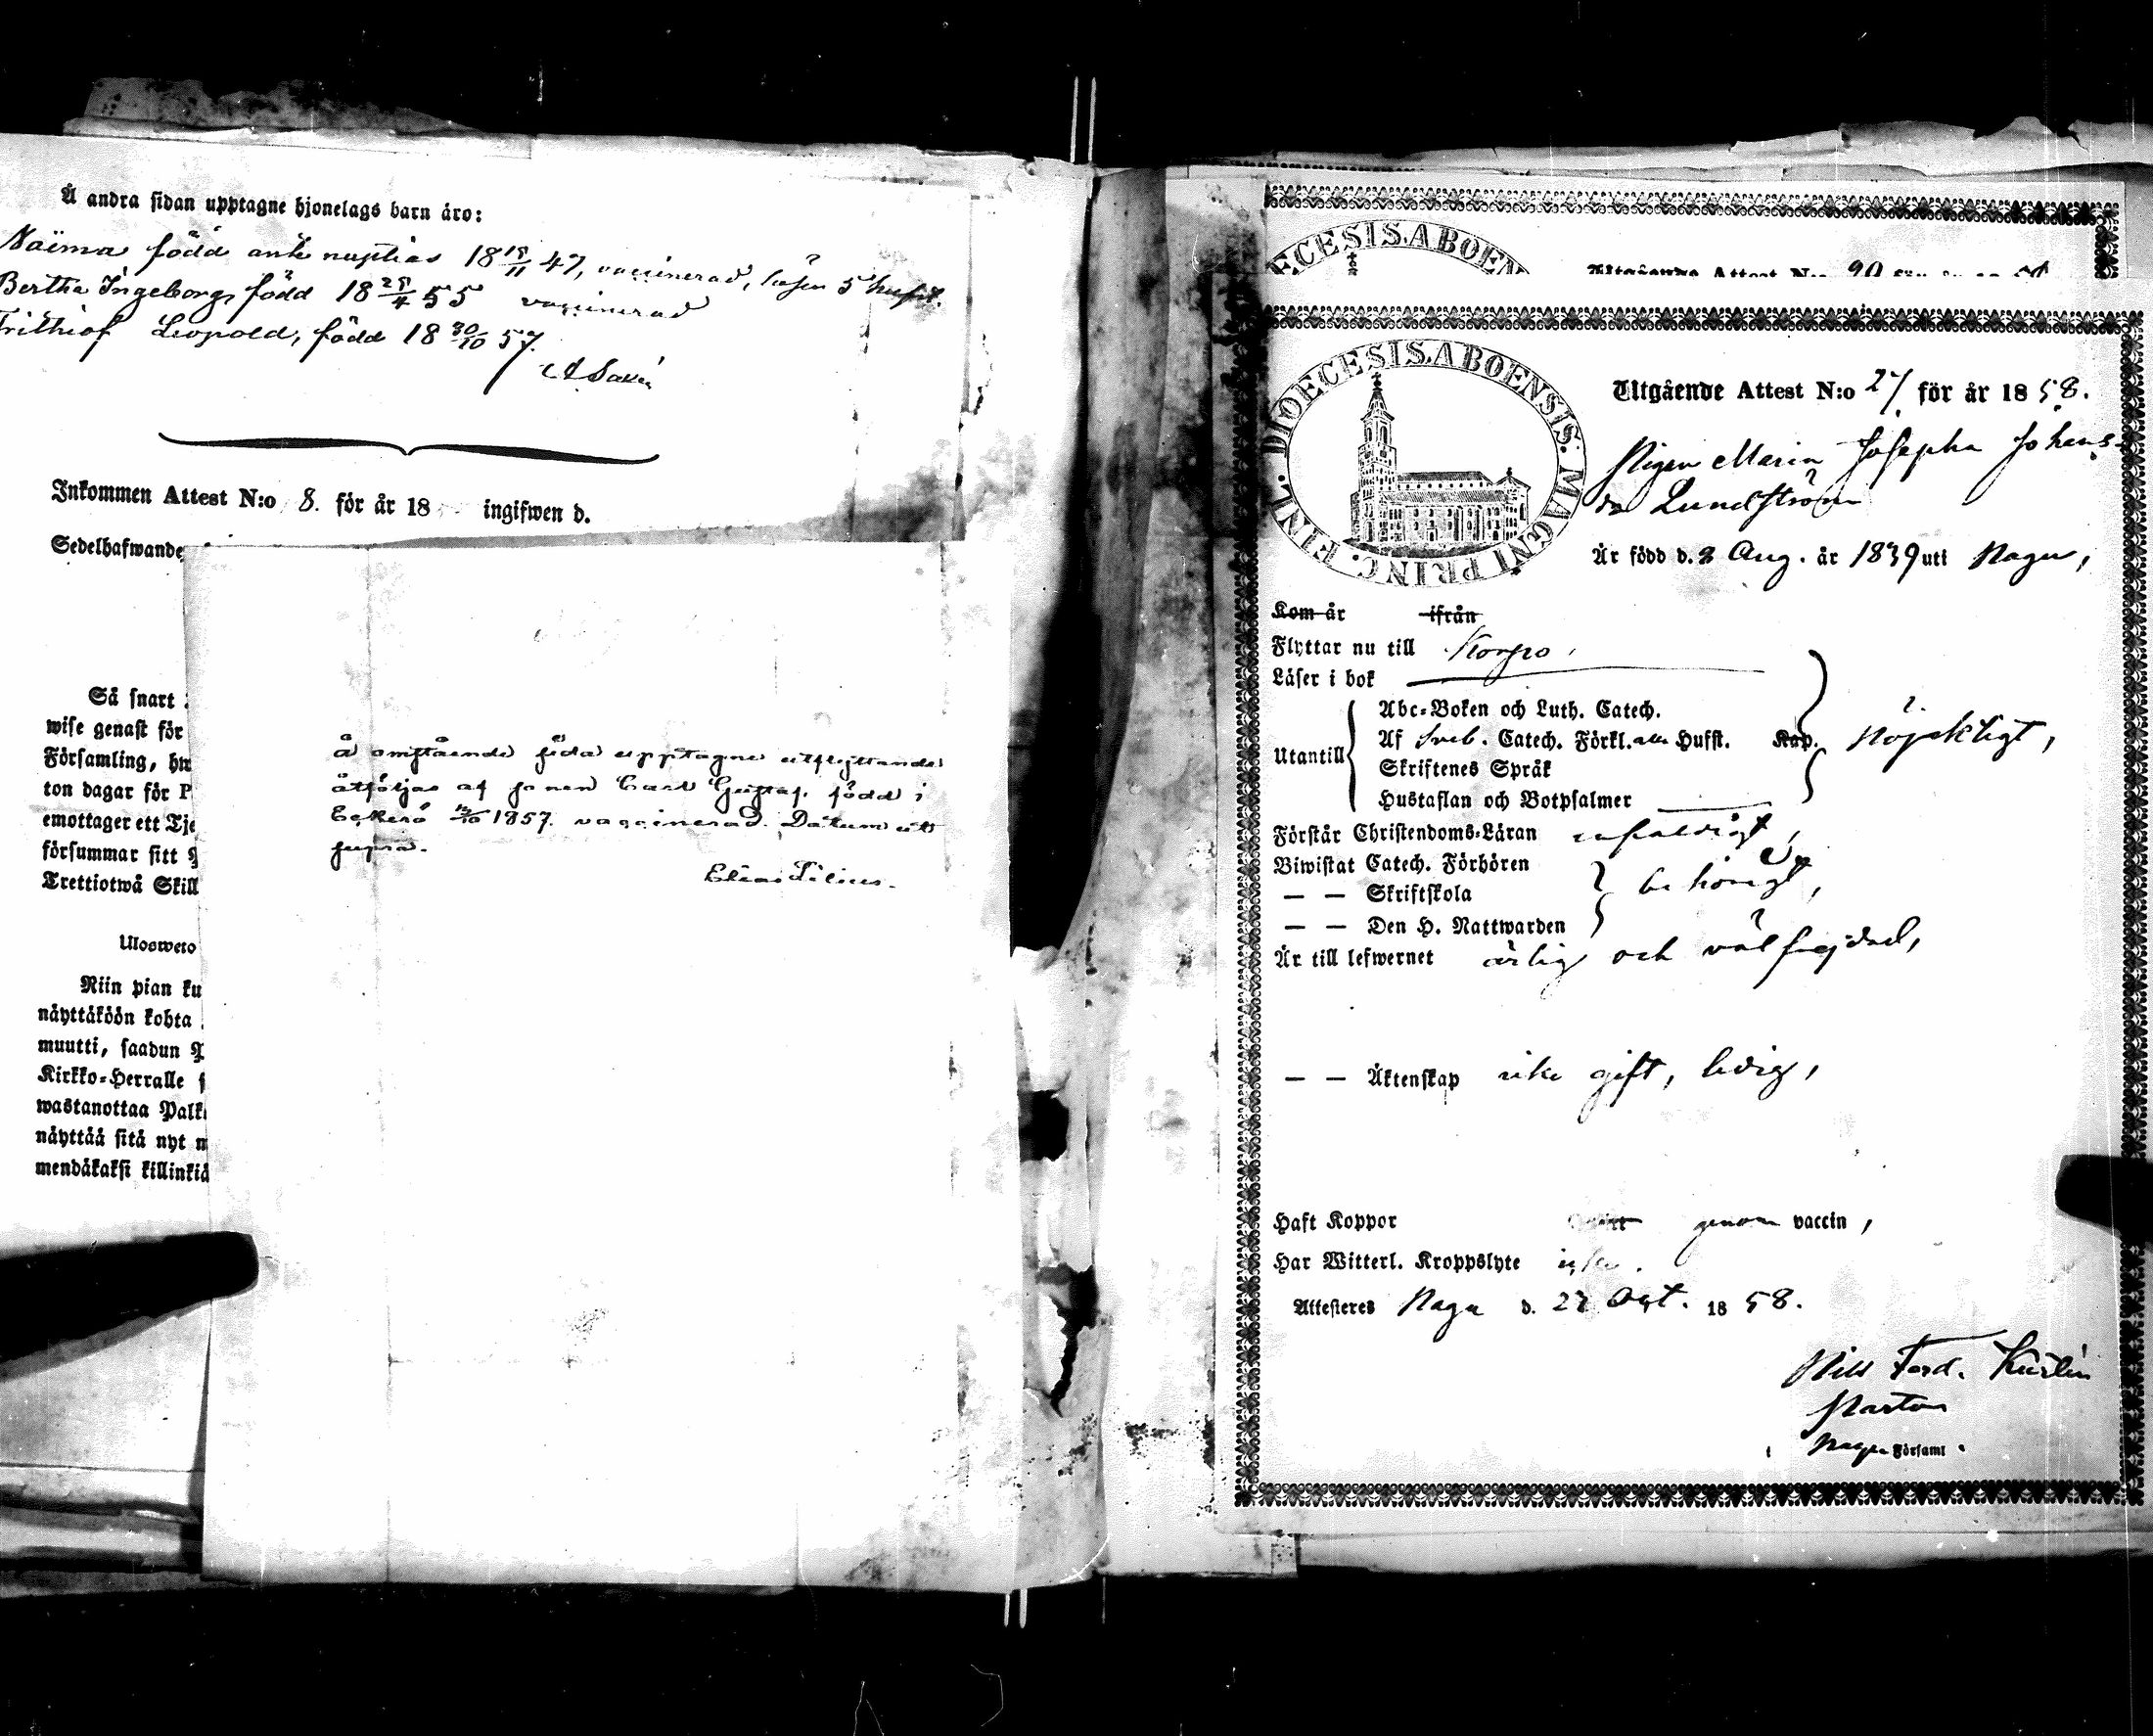 Å andra sidan upptagne hjonelags barn äro:
Naima född ante nuptias 18 18/11 47, vaccinerad, läser 5 hufst.
Bertha Ingeborg född 18 28/4 55 vaccinerad
Frithiof Leopold, född 18 30/10 57.
Inkommen Attest N:o 8. för år 18 ingifwen d.
Sedelhafwande
Så snart
wise genast för
Församling, hw
ton dagar för P
emottager ett Tje
försummar sitt
Trettiotwå Skill
Uloswero
Niin pian ku
näyttäköön kohta
muutti, saadun
Kirkko-Herralle s
wastanottaa Palk
näyttää sitä nyt m
mendäkaksi killinkiä
å omstående sida upptagne utflyttande
åtföljas af sonen Carl Gustaf, född i
Eckerö 1857. vaccinerad. Datum ut
supra.
Elias Lilius.
ECESIS.ABOEN
Utgående Attest N:o 90 för år 18
DIOECESIS.ABOENSIS. MAGNI PRINC. FINL.
Utgående Attest N:o 27 för år 1858.
Pigan Maria Josepha Johans-
dr Lundström
Är född d. 8 Aug. år 1839 uti Nagu,
Kom år ifrån
Flyttar nu till Korpo.
Läser i bok
Abc-Boken och Luth. Catech.
Af Sveb. Catech. Förkl. alla Husst. Kap.
Utantill
nöjaktigt,
Skriftenes Språk
Hustaflan och Botpsalmer
Förstår Christendoms-Läran enfaldigt,
Biwistat Catech. Förhören
— — Skriftskola behörigt,
— — Den H. Nattwarden
Är till lefwernet ärlig och välfrejdad,
— — Äktenskap icke gift, ledig,
Haft Koppor genom vaccin,
Har Witterl. Kroppslyte icke.
Attesteres Nagu d. 22 Oct. 1858.
Nils Ferd.
Pastor
Nagu Församl.